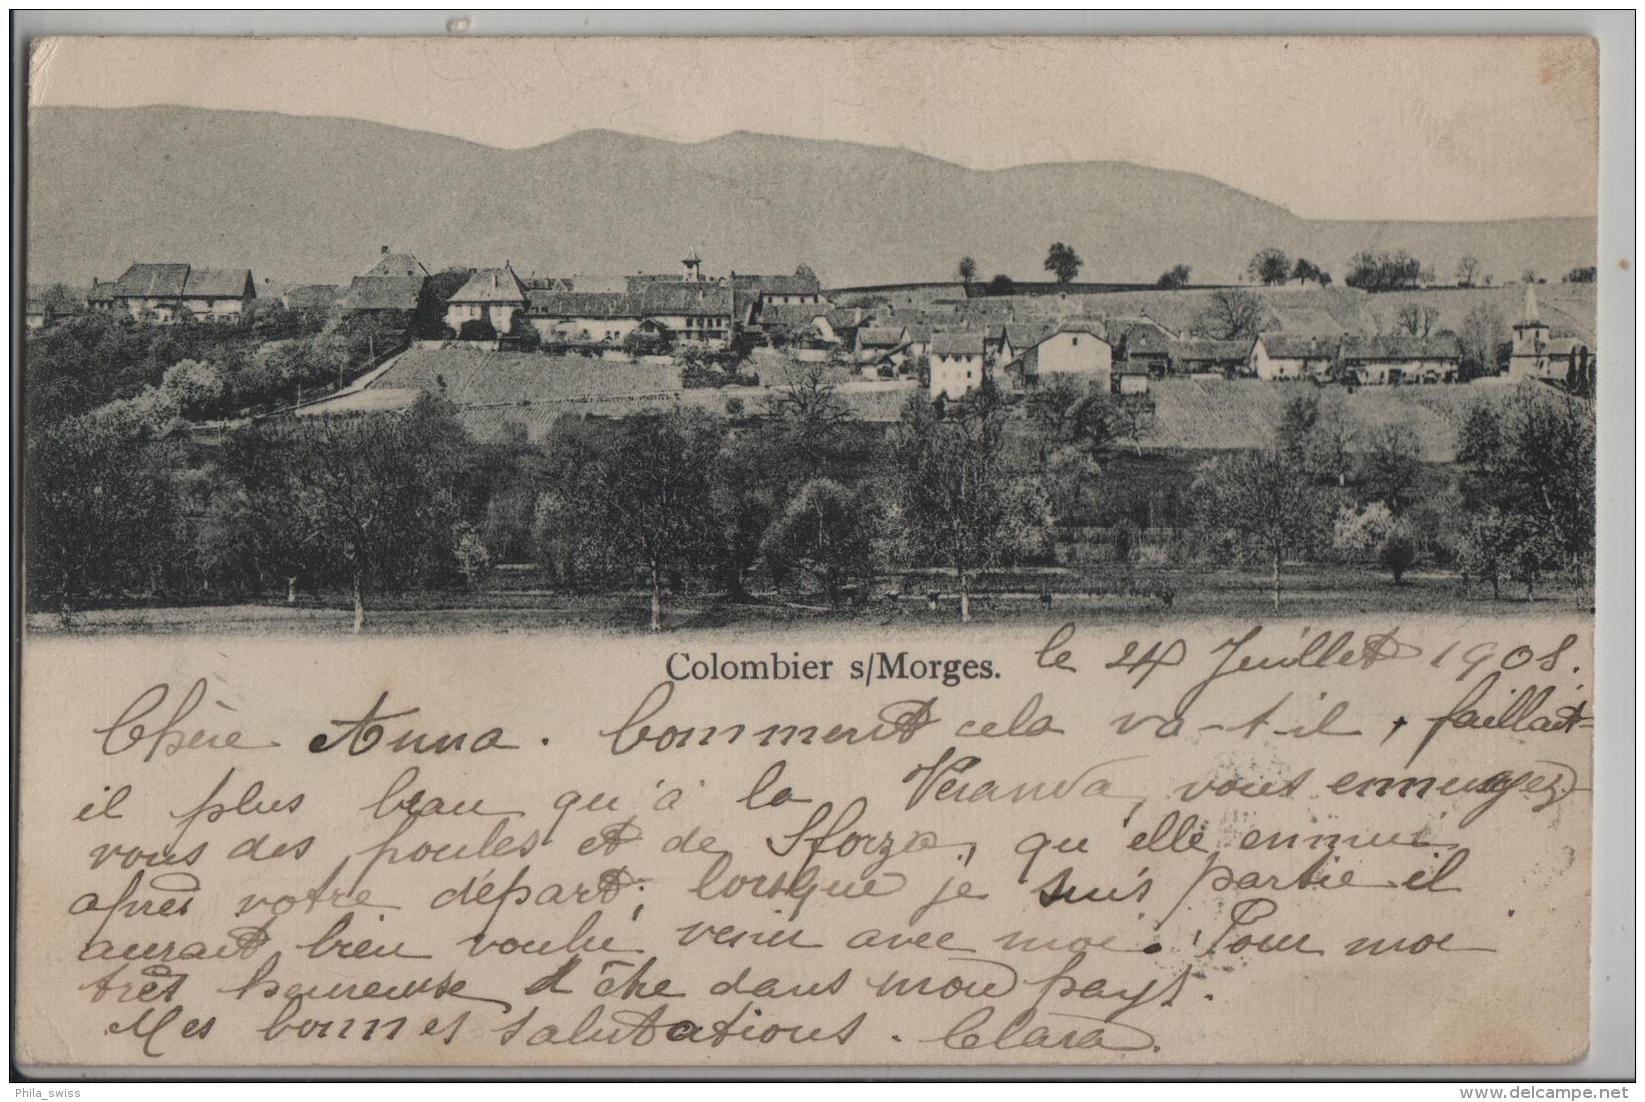 Colombier s/Morges. le 24 Juillet 1908.
Chère Anna. Comment cela va-t-il, faillait-
il plus beau qu'à la Veranda, vous ennuyez-
vous des poules et de Sforza, qu'elle ennui
après votre départ, lorsque je suis partie il
aurait bien voulu venir avec moi. Pour moi
très heureuse d'être dans mon pays.
Mes bonnes salutations. Clara.
Phila_swiss
delcampe.net